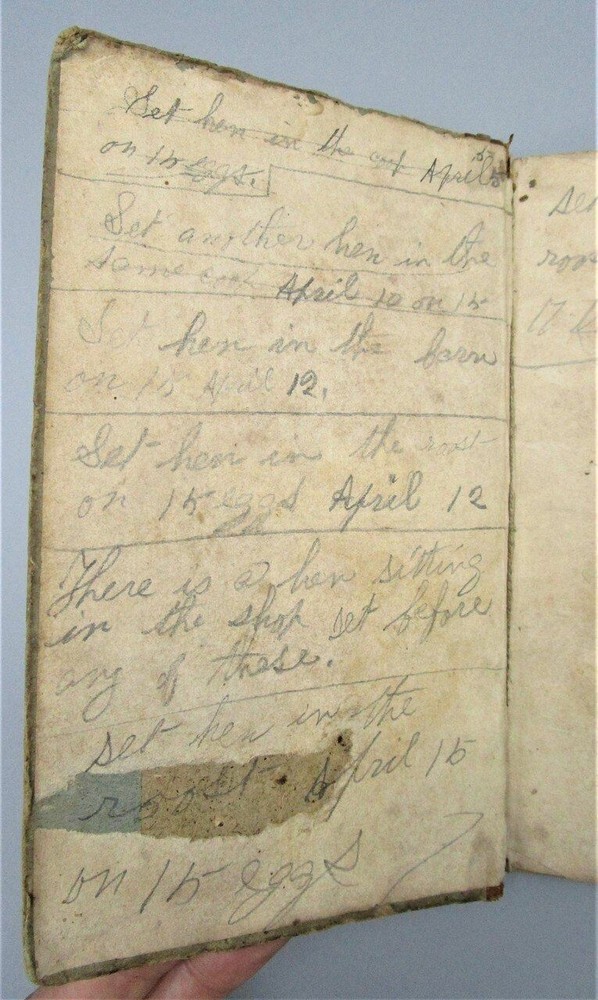 Set hen in the coop April 5
on 15 eggs.
Set another hen in the
same coop April 10 on 15
Set hen in the barn
on 15 April 12.
Set hen in the roost
on 15 eggs April 12
There is a hen sitting
in the shop set before
any of these.
set hen in the
roost April 15
on 15 eggs